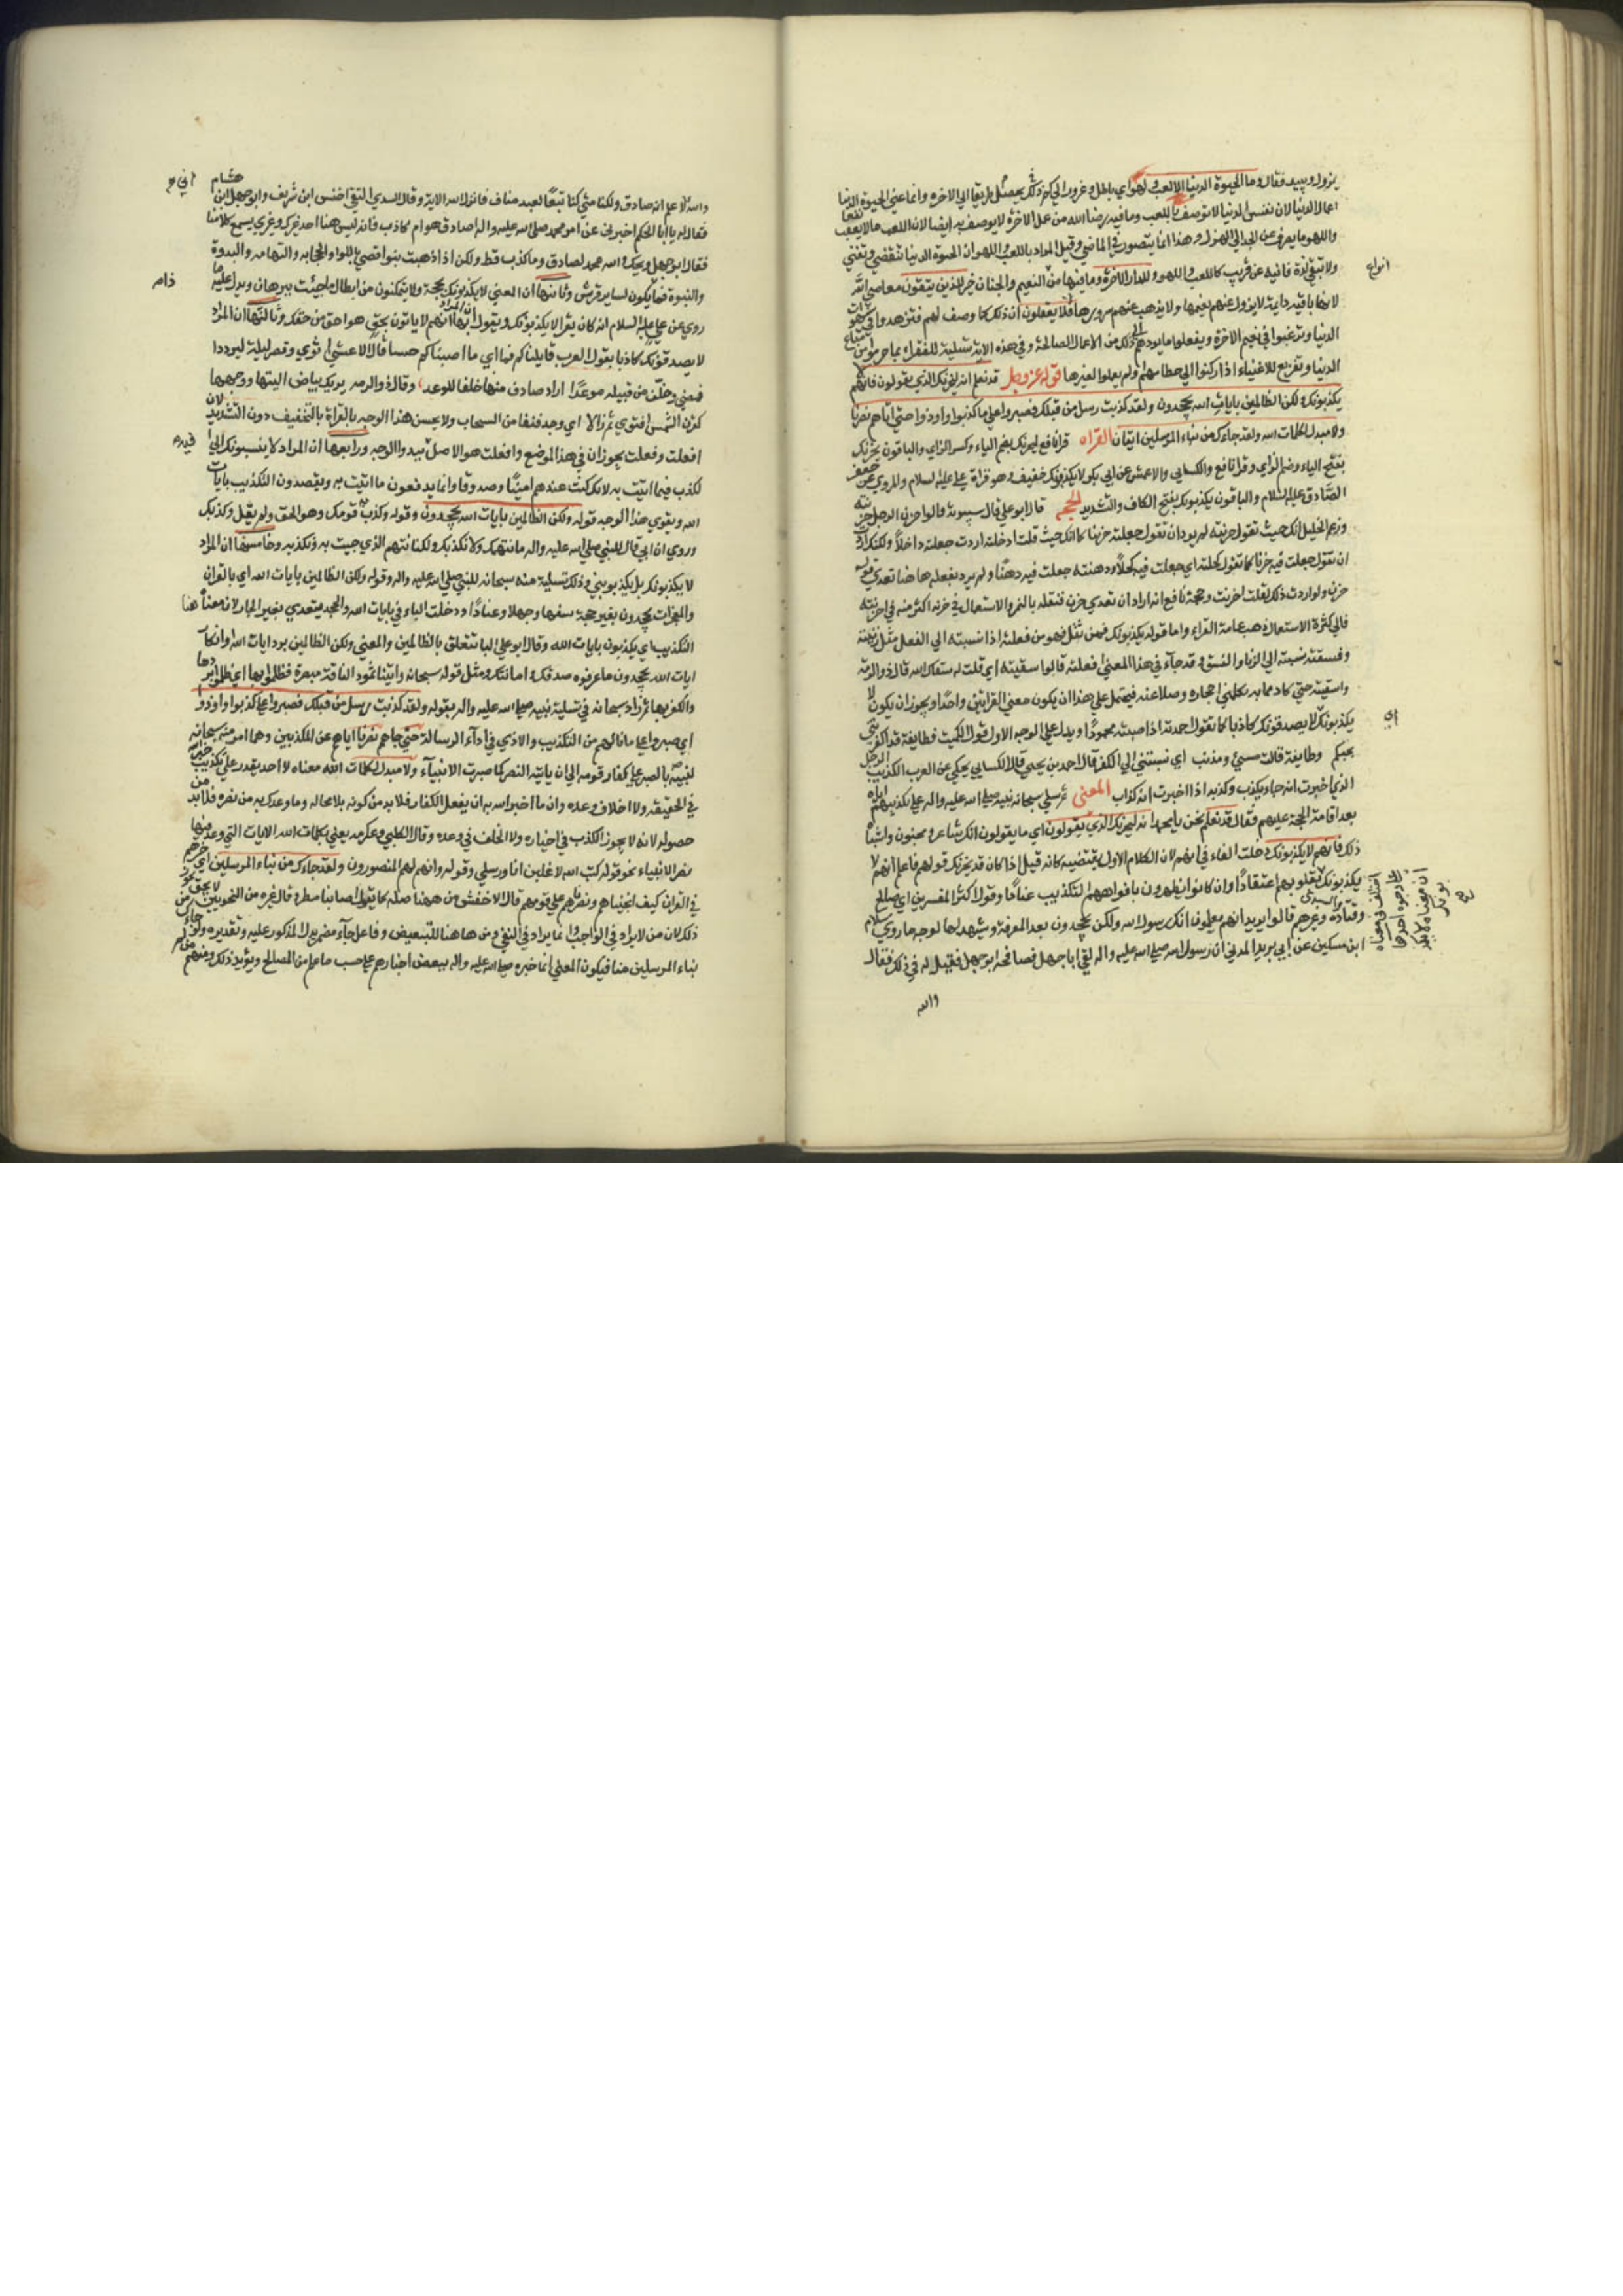 يزول ويبيد فقال وما الحيوة الدنيا الا لعب ولهو اي باطل وغرور اذا لم يجعل ذلك طريقا الي الاخرة وانما عني بالحيوة الدنيا
اعمال الدنيا لان نفس الدنيا لا توصف باللعب وما فيه رضا الله من عمل الاخرة لا يوصف به ايضا لان اللعب ما لا يعقب نفعا
واللهو ما يصرف عن الجد الي الهزل وهذا انما يتصور في المعاصي وقيل المراد باللعب واللهو ان الحيوة الدنيا تنقضي وتفني
ولا تبقي لذة فانية عن قريب كاللعب واللهو وللدار الاخرة وما فيها من النعيم والجنان خير للذين يتقون معاصي الله
انواع
لانها باقية دايمة لا يزول عنهم نعيمها ولا يذهب عنهم سرورها افلا يعقلون ان ذلك كما وصف لهم فيزهدوا في شهوات
الدنيا ويرغبوا في نعيم الاخرة ويفعلوا ما يوديهم الي ذلك من الاعمال الصالحة وفي هذه الاية تسلية للفقراء بما حرموا من متاع
الدنيا وتقريع للاغنياء اذا ركنوا الي حطامها ولم يعملوا لغيرها قوله عز وجل قد نعلم انه ليحزنك الذي يقولون فانهم لا
يكذبونك ولكن الظالمين بايات الله يجحدون ولقد كذبت رسل من قبلك فصبروا علي ما كذبوا واوذوا حتي اتاهم نصرنا
ولا مبدل لكلمات الله ولقد جاءك من نباء المرسلين ايتان القراه قرا نافع ليحزنك بضم الياء وكسر الزاي والباقون يحزنك
بفتح الياء وضم الزاي وقرا نافع والكسايي والاعشي عن ابي بكر لا يكذبونك خفيف وهو قراة علي عليه السلام والمروي عن جعفر
الصادق عليه السلام والباقون يكذبونك بفتح الكاف والتشديد الحجه قال ابو علي قال سيبويه قالوا حزن الرجل وحزنته
وزعم الخليل انك حيث تقول حزنته لم يرد ان تقول جعلته حزينا كما انك حيث قلت ادخلته اردت جعلته داخلا ولكنك اردت
ان تقول جعلت فيه حزنا كما تقول كحلته اي جعلت فيه كحلا ودهنته جعلت فيه دهنا ولم يرد بفعلته هاهنا تعدي قوله
حزن ولو اردت ذلك لقلت احزنته وحجة نافع انه اراد ان تعدي حزن فنقله بالهمز والاستعمال في حزنه اكثر منه في احزنته
فالي كثرة الاستعمال ذهب عامة القراء واما قوله يكذبونك فمن ثقل فهو من فعلته اذا نسبته الي الفعل مثل زنيته
وفسقته نسبته الي الزنا والفسق وقد جاء في هذا المعني افعلته قالوا سقيته اي قلت له سقاك الله قال ذو الرمة
واسقيه حتي كاد مما بثه تكلمني احجاره وملاعبه فيحتمل علي هذا ان يكون معني القرائتين واحدا ويجوز ان يكون لا
يكذبونك لا يصدقونك كاذبا كما تقول احمدته اذا اصبته محمودا ويدل علي الوجه الاول قول الكميت فطايفة قد اكفرتني
اي
بحبكم وطايفة قالت مسيء ومذنب اي نسبتني الي الكفر قال احمد بن يحيي قال الكسايي يحكي عن العرب اكذبت الرجل
اذا اخبرت انه جاء بكذب وكذبته اذا اخبرت انه كذاب المعني ثم سلي سبحانه نبيه صلي الله عليه واله علي تكذيبهم اياه
بعد اقامة الحجة عليهم فقال قد نعلم نحن يا محمد انه ليحزنك الذي يقولون اي ما يقولون انك شاعر ومجنون واشباه
ذلك فانهم لا يكذبونك دخلت الفاء في انهم لان الكلام الاول يقتضيه كانه قيل اذا كان قد يحزنك قولهم فاعلم انهم لا
يكذبونك بقلوبهم اعتقادا وان كانوا يظهرون بافواههم التكذيب عنادا وقول اكثر المفسرين ابي صالح
وقتادة والسدي وغيرهم قالوا يريد انهم يعلمون انك رسول الله ولكن يجحدون بعد المعرفة ويشهد لهذا الوجه ما روي سلام
ابن مسكين عن ابي يزيد المدني ان رسول الله صلي الله عليه واله لقي ابا جهل فصافحه ابو جهل فقيل له في ذلك فقال
اختلف في معناه
علي وجوه احدها
ان معناه لا يكذ
بونك
صح
والله
هشام
اني
والله لاعلم انه صادق ولكنا متي كنا تبعا لعبد مناف فانزل الله الاية وقال السدي التقي اخنس ابن شريف وابو جهل ابن
فقال له يا ابا الحكم اخبرني عن امر محمد صلي الله عليه واله اصادق هو ام كاذب فانه ليس هنا احد غيرك وغيري يسمع كلامنا
فقال ابو جهل ويحك والله محمد لصادق وما كذب قط ولكن اذا ذهبت بنو قصي باللواء والحجابه والندوة
والنبوة فما يكون لساير قريش وثانيها ان المعني لا يكذبونك بحجة ولا يتمكنون من ابطال ما جئت به ببرهان ويدل عليه ما
روي عن علي عليه السلام انه كان يقرا لا يكذبونك ويقول ان المراد بها انهم لا ياتون بحق هو احق من حقك وثالثها ان المراد
لا يصدقونك كاذبا يقول العرب قاتلناكم فما اجبناكم اي ما اصبناكم جبناء قال الاعشي اثوي وقصر ليلة ليزودا
فمضي وخلف من قتيلة موعدا اراد صادف منها خلفا للوعد وقال ذو الرمه تريك بياض لبتها ووجهها
كقرن الشمس افتق ثم زالا اي وجد فتقا من السحاب ولا يحسن هذا الوجه بالقراة بالتخفيف دون التشديد لان
افعلت وفعلت يجوزان في هذا الموضع وافعلت هو الاصل فيه والوجه ورابعها ان المراد لا ينسبونك الي
لكذب فيما اتيت به لانك كنت عندهم امينا وصدوقا وانما يدفعون ما اتيت به ويقصدون التكذيب بايات
الله ويقوي هذا الوجه قوله ولكن الظالمين بايات الله يجحدون وقوله وكذب به قومك وهو الحق ولم يقل وكذبك
وروي ان ابي قال للنبي صلي الله عليه واله ما نتهمك ولا نكذبك ولكنا نتهم الذي جيت به ونكذبه وخامسها ان المراد
لا يكذبونك بل يكذبونني وذلك تسلية منه سبحانه للنبي صلي الله عليه واله وقوله ولكن الظالمين بايات الله اي بالقران
والمعجزات يجحدون بغير حجة سفها وجهلا وعنادا ودخلت الباء في بايات الله والجحد يتعدي بغير الجار لان معناه هنا
التكذيب اي يكذبون بايات الله وقال ابو علي البا تتعلق بالظالمين والمعني ولكن الظالمين برد ايات الله وانكار
ايات الله يجحدون ما عرفوه من صدقك وامانتك ومثل قوله سبحانه واتينا ثمود الناقة مبصرة فظلموا بها اي ظلموا بردها
والكفر بها ثم زاد سبحانه في تسلية نبيه صلي الله عليه واله بقوله ولقد كذبت رسل من قبلك فصبروا علي ما كذبوا واوذوا
اي صبروا علي ما نالهم من التكذيب والاذي في اداء الرسالة حتي جاءهم نصرنا اياهم عن المكذبين وهذا امر منه سبحانه
لنبيه بالصبر علي كفار قومه الي ان ياتيه النصر كما صبرت الانبياء ولا مبدل لكلمات الله معناه لا احد يقدر علي تكذيب خبر الله
في الحقيقة ولا اخلاف وعده وان ما اخبر الله به ان يفعل بالكفار فلا بد من كونه بلا محاله وما وعدك به من نصره فلا بد من
حصوله لانه لا يجوز الكذب في اخباره ولا الخلف في وعده وقال الكلبي وعكرمه يعني بكلمات الله الايات التي وعد فيها
نصر الانبياء نحو قوله كتب الله لاغلبن انا ورسلي وقوله وانهم لهم المنصورون ولقد جاءك من نباء المرسلين اي خبرهم
في القران كيف انجيناهم ونصرناهم علي قومهم قال الاخفش من ههنا صلة كما يقول اصابنا من مطر وقال غيره من النحويين لا يجوز
ذلك لان من لا يزاد في الواجب وانما يزاد في النفي ومن هاهنا للتبعيض وفاعل جاء مضمر يدل المذكور عليه وتقديره ولقد جاءك من
نباء المرسلين نبا فيكون المعني انما خبره صلي الله عليه واله ببعض اخبارهم علي حسب ما علم من المصالح ويؤيد ذلك ومنهم من